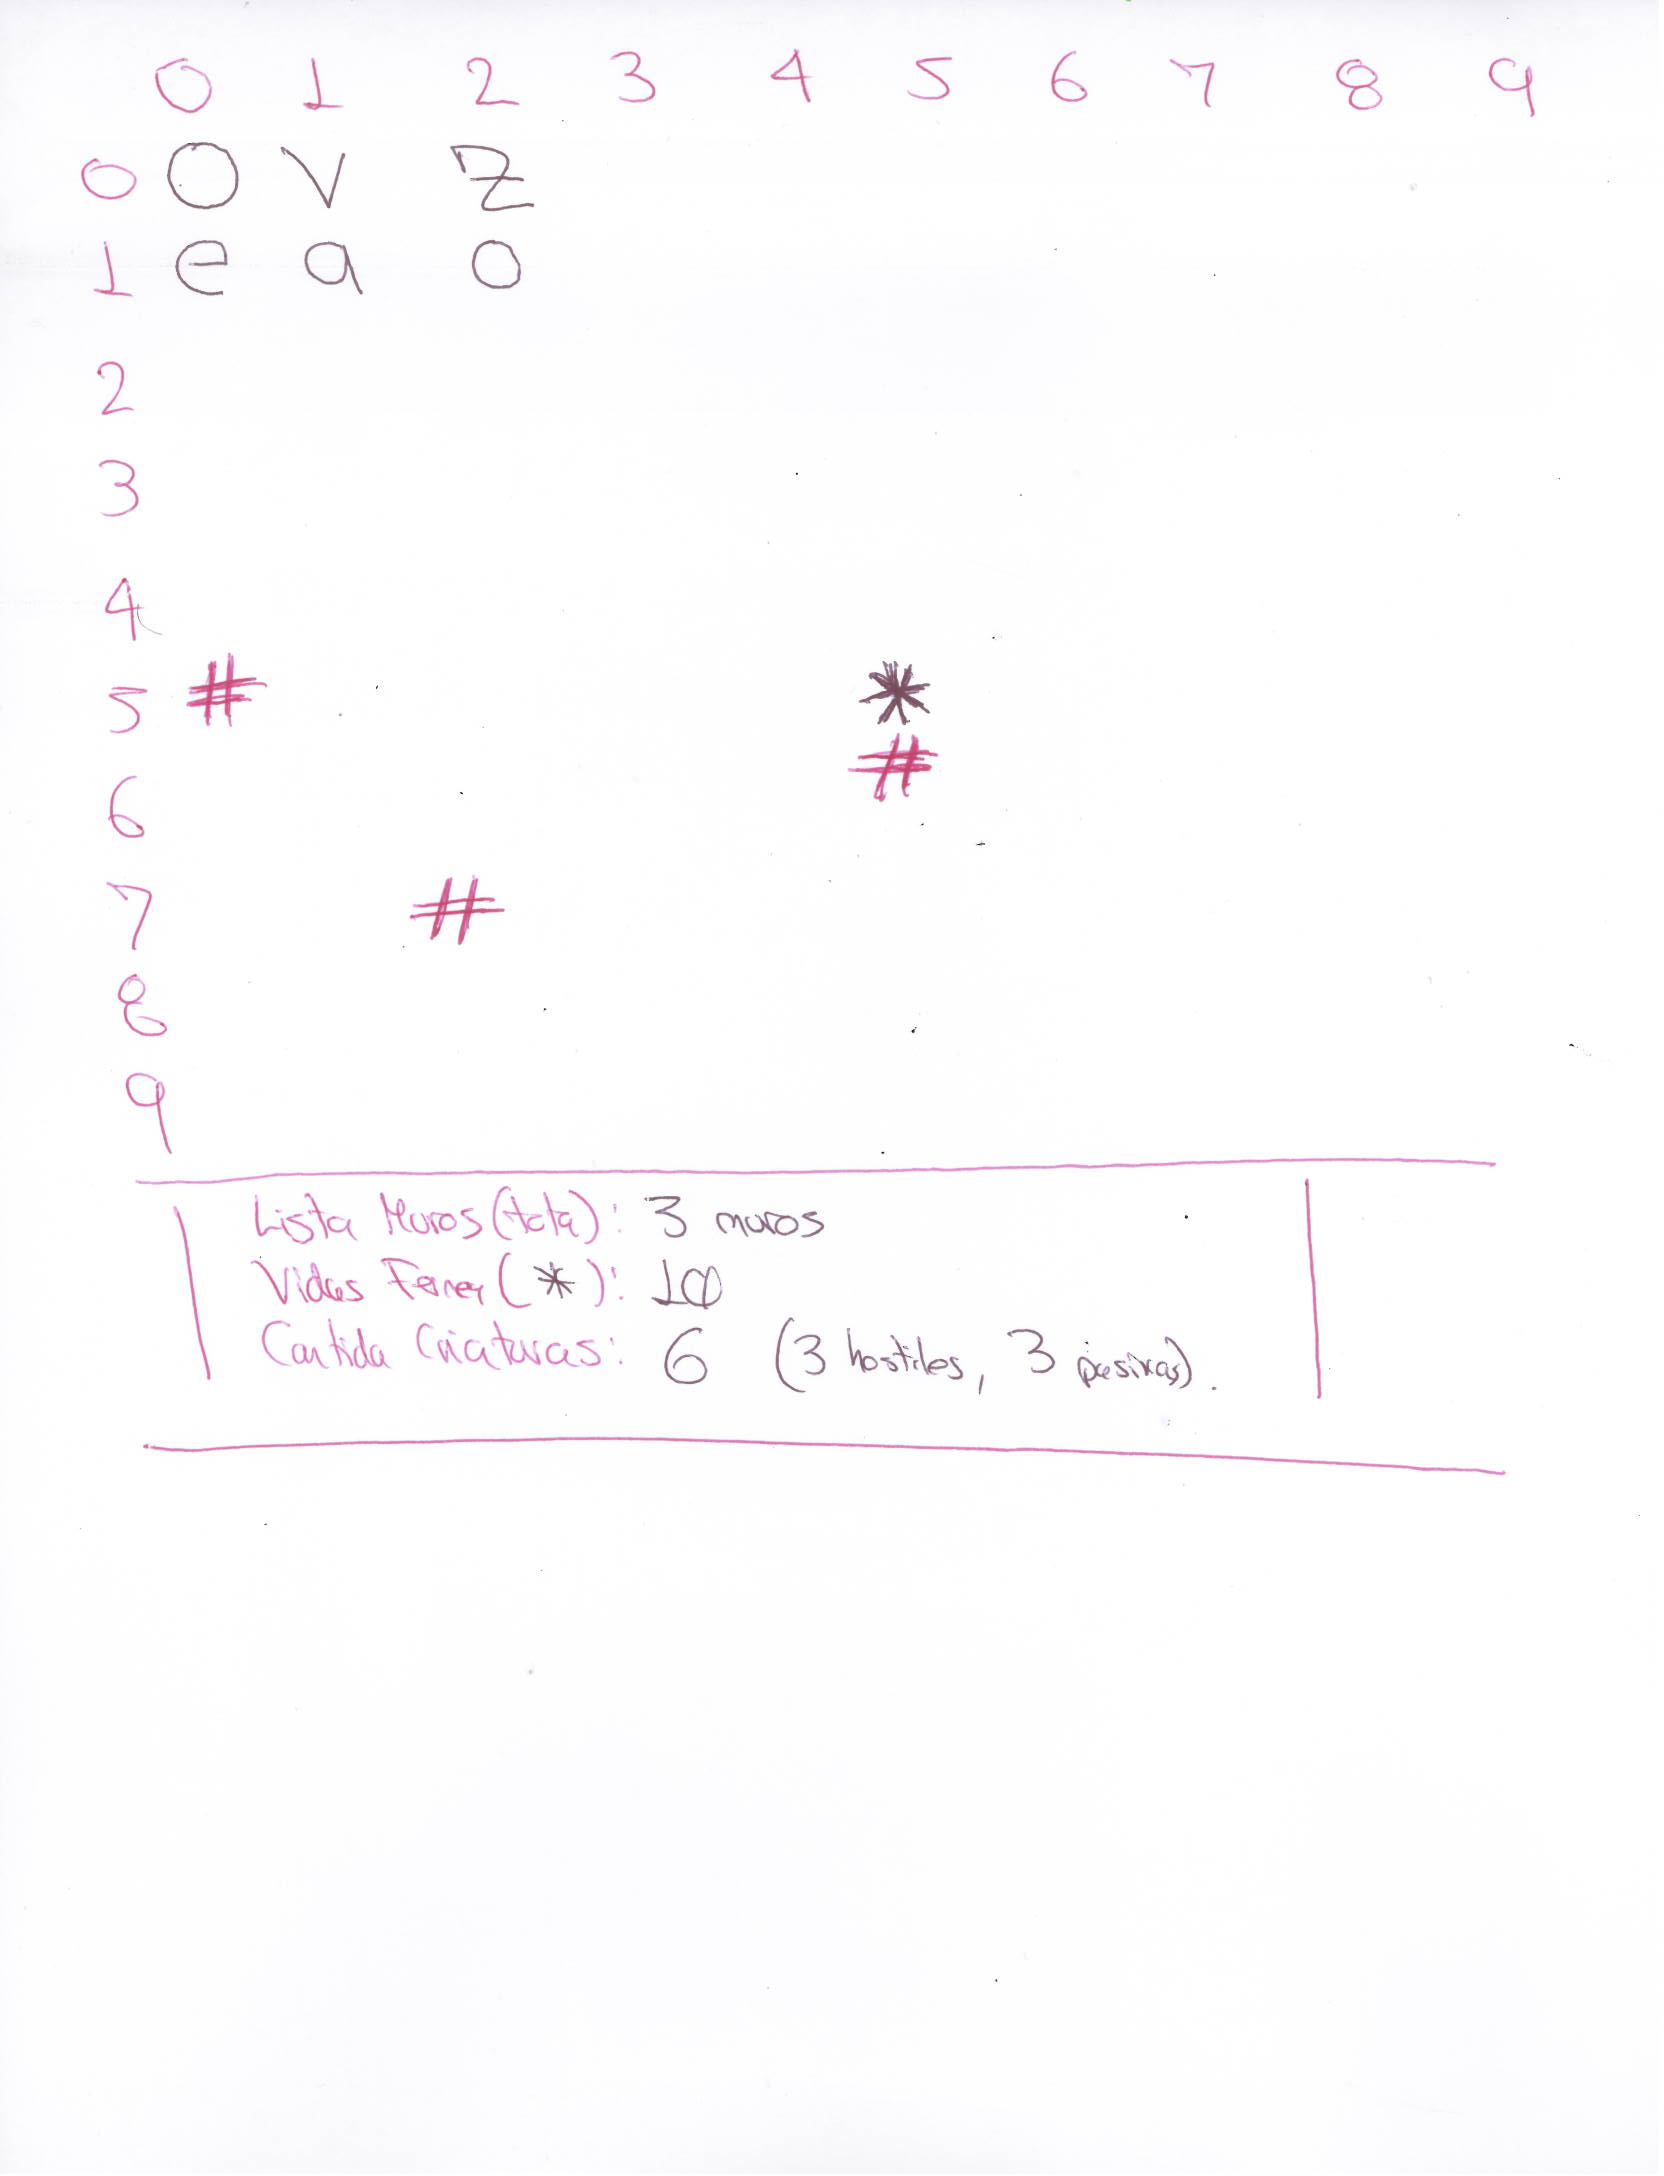 0 1 2 3 4 5 6 7 8 9
0 O V Z
1 e a o
2
3
4
5 # *
#
6
7 #
8
9
Lista Muros (tota): 3 muros
Vidas (*): 10
Cantida Criaturas: 6 (3 hostiles, 3 pasivas).